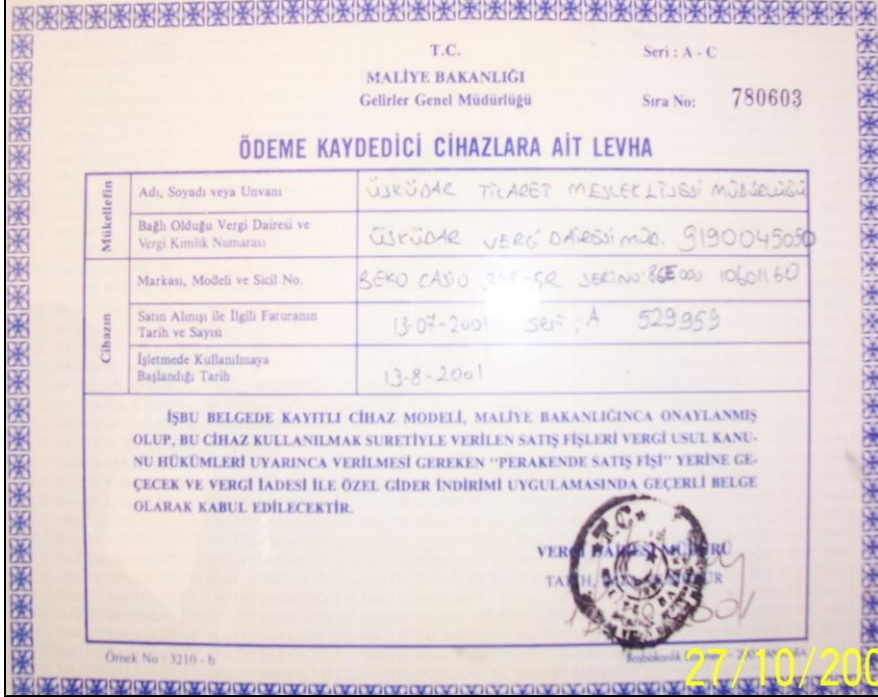 T.C.
Seri : A - C
MALİYE BAKANLIĞI
Gelirler Genel Müdürlüğü
Sıra No: 780603
ÖDEME KAYDEDİCİ CİHAZLARA AİT LEVHA
Mükellefin
Adı, Soyadı veya Unvanı
ÜSKÜDAR TİCARET MESLEK LİSESİ MÜDÜRLÜĞÜ
Bağlı Olduğu Vergi Dairesi ve
Vergi Kimlik Numarası
ÜSKÜDAR VERGİ DAİRESİ MÜD. 9190045050
Cihazın
Markası, Modeli ve Sicil No.
BEKO CASIO SERİ NO: 10601160
Satın Alınışı ile İlgili Faturanın
Tarih ve Sayısı
13-07-2001 Seri : A 529959
İşletmede Kullanılmaya
Başlandığı Tarih
13-8-2001
İŞBU BELGEDE KAYITLI CİHAZ MODELİ, MALİYE BAKANLIĞINCA ONAYLANMIŞ
OLUP, BU CİHAZ KULLANILMAK SURETİYLE VERİLEN SATIŞ FİŞLERİ VERGİ USUL KANU-
NU HÜKÜMLERİ UYARINCA VERİLMESİ GEREKEN "PERAKENDE SATIŞ FİŞİ" YERİNE GE-
ÇECEK VE VERGİ İADESİ İLE ÖZEL GİDER İNDİRİMİ UYGULAMASINDA GEÇERLİ BELGE
OLARAK KABUL EDİLECEKTİR.
T.C.
VERGİ DAİRESİ MÜDÜRÜ
Örnek No : 3210 - b
27/10/200